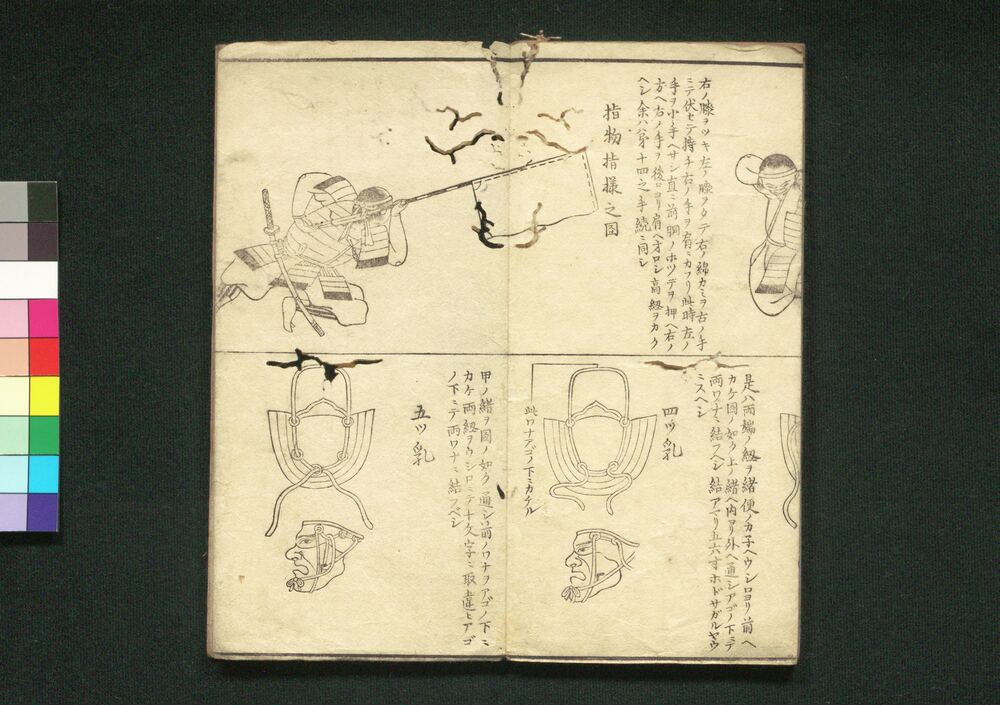 右ノ膝ヲツキ左ノ膝ヲタテ右ノ綿カミヲ右ノ手
ニテ伏セテ持チ右ノ手ヲ肩ニカフリ此時左ノ
手ヲ小手ヘサシ直ニ前胴ノホツデヲ押ヘ右ノ
方ヘ右ノ手ヲ後ロヨリ肩ヘオロシ高紐ヲカク
ヘシ余ハ第十四之手続ニ同シ
指物指様之図
是ハ両端ノ紐ヲ緒便ノカ子ヘウシロヨリ前ヘ
カケ図ノ如ク上ノ緒ヘ内ヨリ外ヘ通シアゴノ下ニテ
両ワナニ結フヘシ結アマリ五六寸ホドサガルヤウ
ニスヘシ
四ツ乳
此ワナアゴノ下ニカヽル
甲ノ緒ヲ図ノ如ク通シ前ノワナヲアゴノ下ニ
カケ両紐ヲウシロニテ十文字ニ取違ヒアゴ
ノ下ニテ両ワナニ結フベシ
五ツ乳